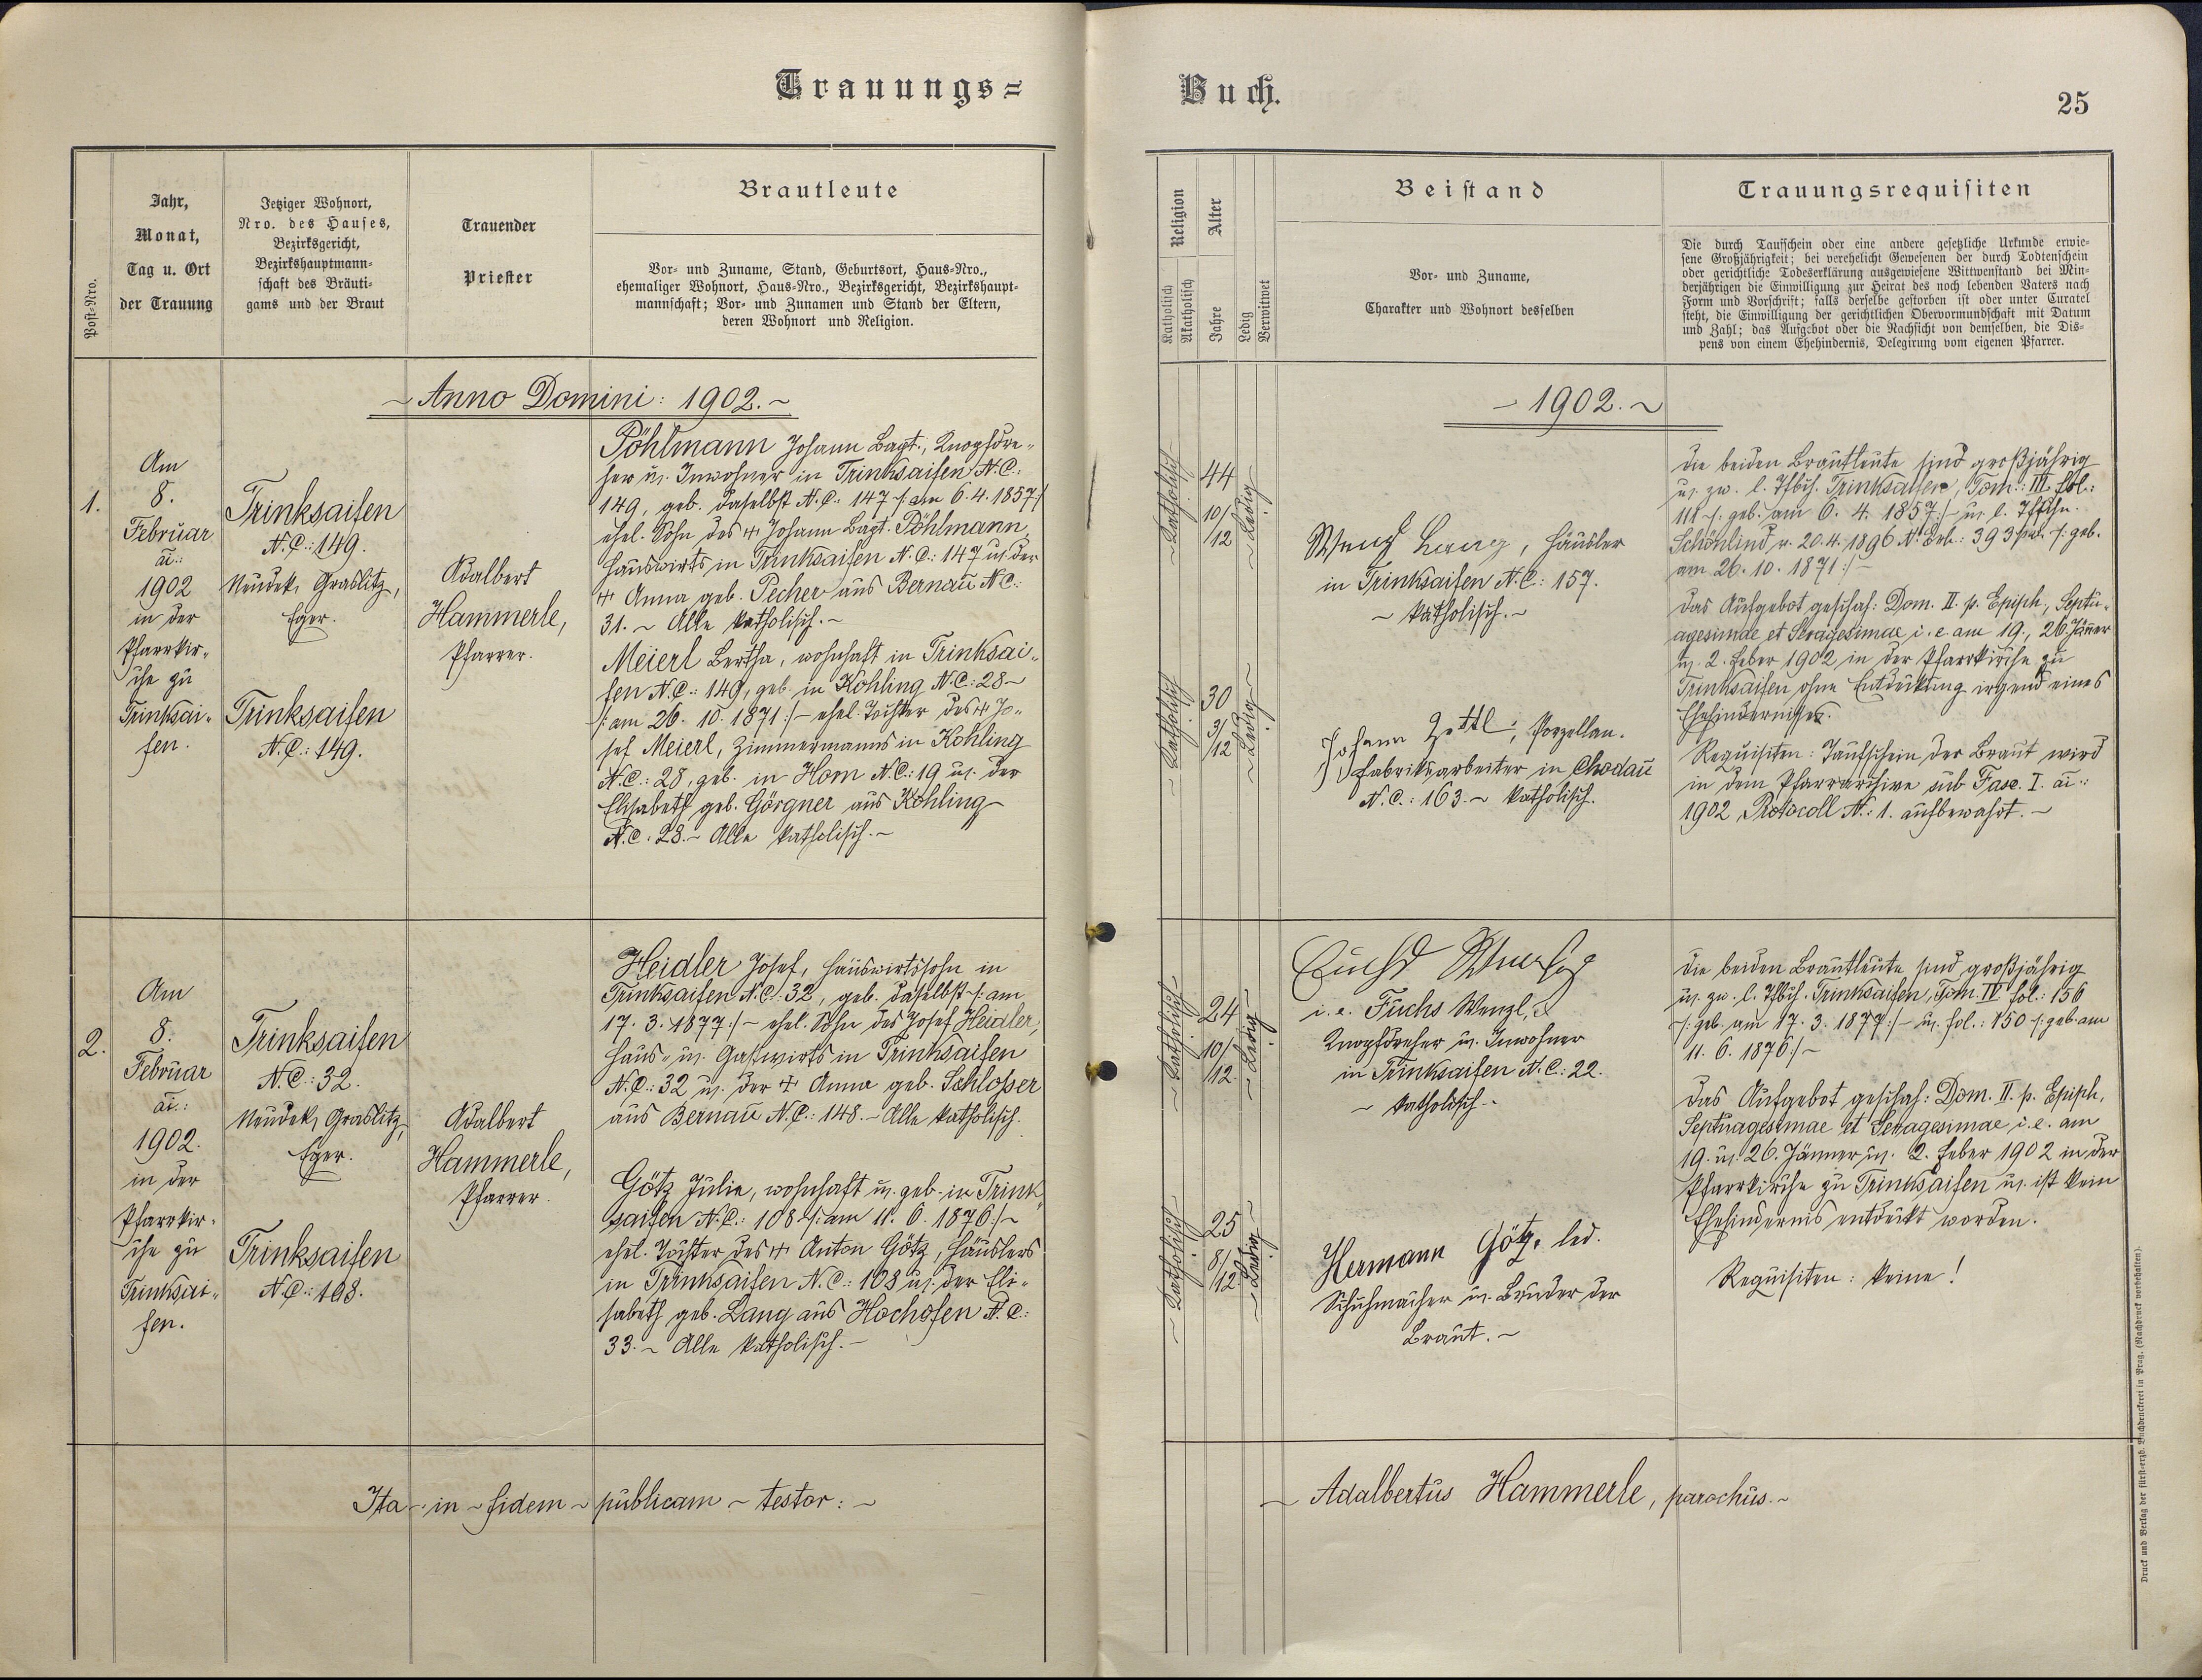 Trauungs=
Buch.
25
Post-Nro.
Jahr,
Monat,
Tag u. Ort
der Trauung
Jetziger Wohnort,
Nro. des Hauses,
Bezirksgericht,
Bezirkshauptmann-
schaft des Bräuti-
gams und der Braut
Trauender
Priester
Brautleute
Vor- und Zuname, Stand, Geburtsort, Haus-Nro.,
ehemaliger Wohnort, Haus-Nro., Bezirksgericht, Bezirkshaupt-
mannschaft; Vor- und Zunamen und Stand der Eltern,
deren Wohnort und Religion.
Religion
Katholisch
Akatholisch
Alter
Jahre
Ledig
Verwitwet
Beistand
Vor- und Zuname,
Charakter und Wohnort desselben
Trauungsrequisiten
Die durch Taufschein oder eine andere gesetzliche Urkunde erwie-
sene Großjährigkeit; bei verehelicht Gewesenen der durch Todtenschein
oder gerichtliche Todeserklärung ausgewiesene Wittwenstand bei Min-
derjährigen die Einwilligung zur Heirat des noch lebenden Vaters nach
Form und Vorschrift; falls derselbe gestorben ist oder unter Curatel
steht, die Einwilligung der gerichtlichen Obervormundschaft mit Datum
und Zahl; das Aufgebot oder die Nachsicht von demselben, die Dis-
pens von einem Ehehindernis, Delegirung vom eigenen Pfarrer.
~ Anno Domini: 1902. ~
1.
Am
8.
Februar
ai.:
1902
in der
Pfarrkir-
che zu
Trinksai-
fen.
Trinksaifen
N.C.: 149.
Neudek, Graslitz,
Eger.
Trinksaifen
N.C.: 149.
Adalbert
Hammerle,
Pfarrer.
Pöhlmann Johann Bapt., Knopfdre-
her u. Inwohner in Trinksaifen N.C.:
149, geb. daselbst N.C. 147 /: am 6. 4. 1857 :/
ehel. Sohn des + Johann Bapt. Pöhlmann,
Hauswirts in Trinksaifen N.C.: 147 u. der
+ Anna geb. Pecher aus Bernau N.C.:
31. ~ Alle katholisch. ~
Meierl Bertha, wohnhaft in Trinksai-
fen N.C.: 149, geb. in Kohling N.C.: 28 ~
/: am 26. 10. 1871 :/ ~ ehel. Tochter des + Jo-
sef Meierl, Zimmermanns in Kohling
N.C.: 28, geb. in Horn N.C.: 19 u. der
Elisabeth geb. Görgner aus Kohling ~
N.C. 28. ~ Alle katholisch. ~
~ 1902. ~
~ Katholisch ~
44
10/12
~ Ledig ~
Wenzl Lang, Häusler
in Trinksaifen N.C.: 157.
~ katholisch. ~
~ Katholisch ~
30
3/12
~ Ledig ~
Johann Zettl, Porzellan-
fabriksarbeiter in Chodau
N.C.: 163. ~ katholisch.
Die beiden Brautleute sind großjährig
u. zw. l. Tfbch. Trinksaifen, Tom.: III. fol.:
/: geb. am 6. 4. 1857 :/ ~ u. l. Tfschn.
Schönlind v. 20. 4. 1896 N. Exh.: 393 /: geb.
am 26. 10. 1871 :/ ~
Das Aufgebot geschah: Dom. II. p. Epiph., Septu-
agesimae et Sexagesimae i. e. am 19., 26. Jänner
u. 2. Feber 1902 in der Pfarrkirche zu
Trinksaifen ohne Entdeckung irgend eines
Ehehindernisses.
Requisiten: Taufschein der Braut wird
in dem Pfarrarchive sub Fasc. I. ai.:
1902, Protocoll N.: 1. aufbewahrt. ~
2.
Am
8.
Februar
ai.:
1902.
in der
Pfarrkir-
che zu
Trinksai-
fen.
Trinksaifen
N.C.: 32.
Neudek, Graslitz,
Eger.
Trinksaifen
N.C.: 108.
Adalbert
Hammerle,
Pfarrer.
Heidler Josef, Hauswirtssohn in
Trinksaifen N.C.: 32, geb. daselbst /: am
17. 3. 1877 :/ ~ ehel. Sohn des Josef Heidler,
Haus- u. Gastwirts in Trinksaifen
N.C.: 32 u. der + Anna geb. Schlosser
aus Bernau N.C.: 148. ~ Alle katholisch.
Götz Julie, wohnhaft u. geb. in Trink-
saifen N.C.: 108 /: am 11. 6. 1876 :/ ~
ehel. Tochter des + Anton Götz, Häuslers
in Trinksaifen N.C.: 108 u. der Eli-
sabeth geb. Lang aus Hochofen N.C.:
33. ~ Alle katholisch. ~
~ Katholisch ~
24
10/12
~ Ledig ~
i. e. Fuchs Wenzl,
Knopfdreher u. Inwohner
in Trinksaifen N.C.: 22.
~ katholisch. ~
~ Katholisch ~
25
8/12
~ Ledig ~
Hermann Götz, led.
Schuhmacher u. Bruder der
Braut. ~
Die beiden Brautleute sind großjährig
u. zw. l. Tfbch. Trinksaifen, Tom. IV fol.: 156
/: geb. am 17. 3. 1877 :/ ~ u. fol.: 150 /: geb. am
11. 6. 1876 :/ ~
Das Aufgebot geschah: Dom. II. p. Epiph.,
Septuagesimae et Sexagesimae i. e. am
19. u. 26. Jänner u. 2. Feber 1902 in der
Pfarrkirche zu Trinksaifen u. ist kein
Ehehindernis entdeckt worden.
Requisiten: keine!
Ita ~ in ~ fidem ~ publicam ~ testor: ~
~ Adalbertus Hammerle, parochus. ~
Druck und Verlag der fürst-erzb. Buchdruckerei in Prag. (Nachdruck vorbehalten).